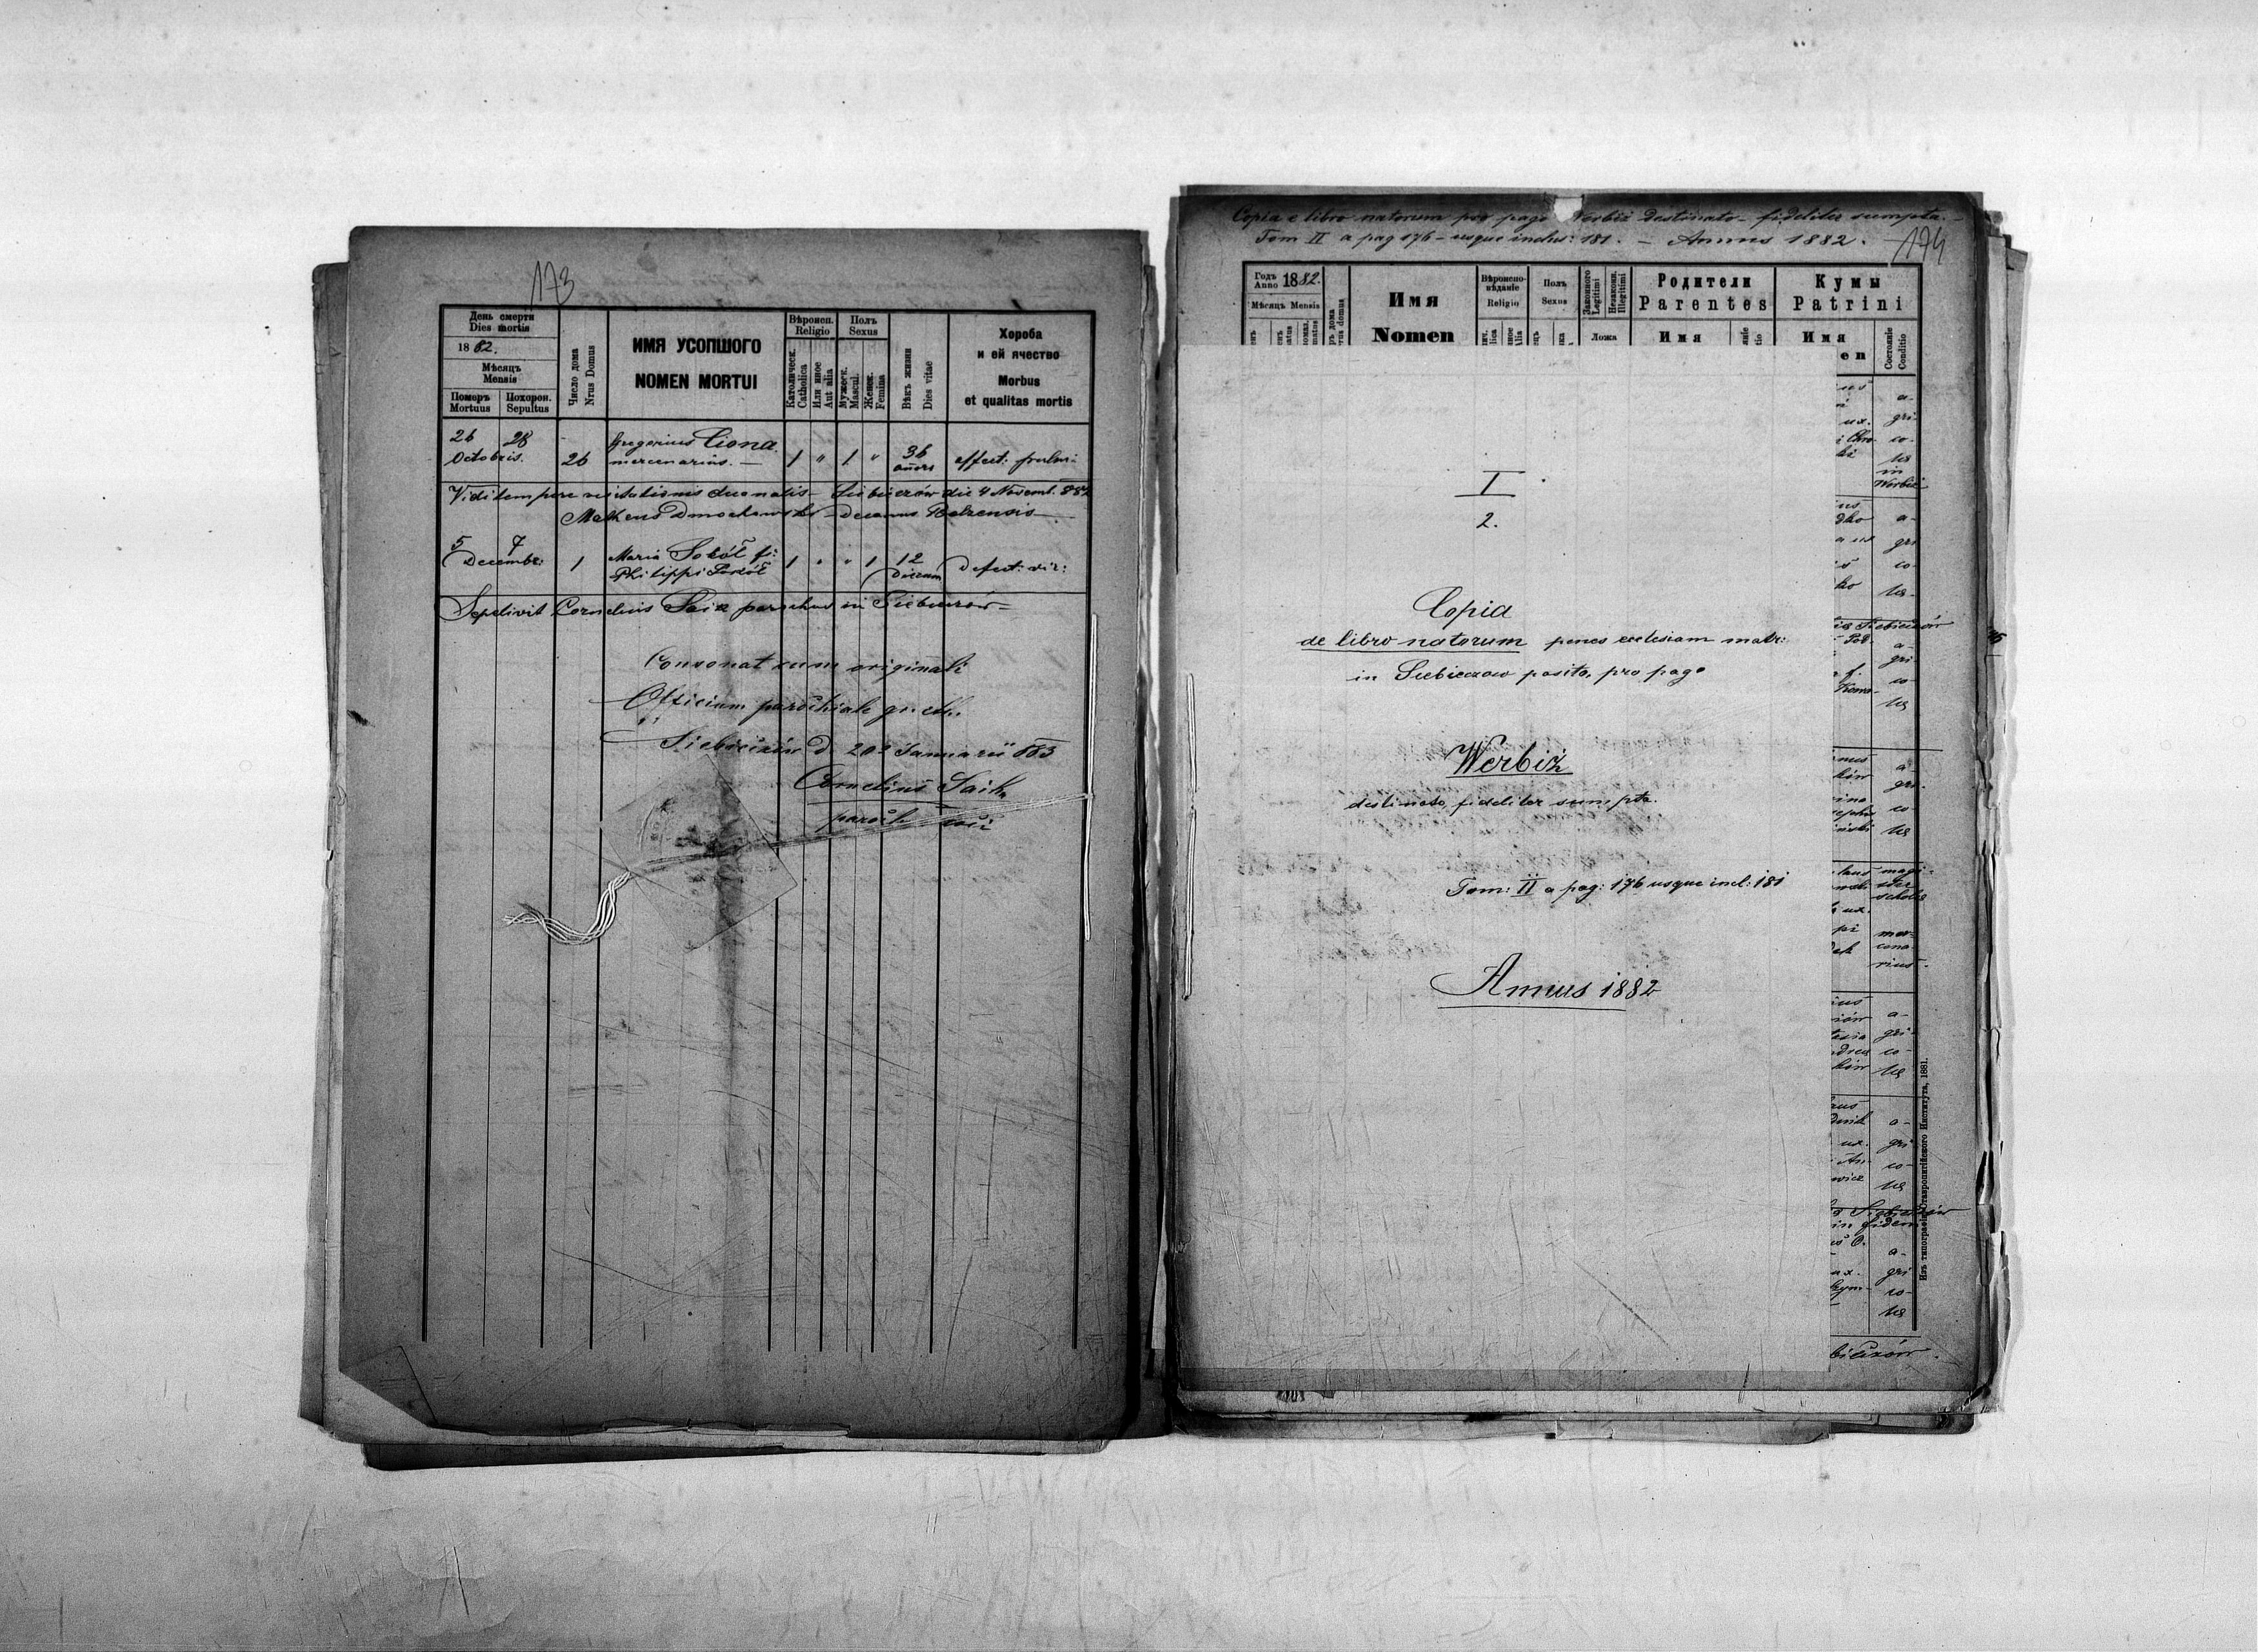 173
День смерти
Dies mortis
1882.
Мѣсяцъ
Mensis
Померъ
Mortuus
Похорон.
Sepultus
Число дома
Nrus Domus
ИМЯ УСОПШОГО
NOMEN MORTUI
Вѣроисп.
Religio
Католическ.
Catholica
Или иное
Aut alia
Полъ
Sexus
Мужеск.
Mascul.
Женск.
Femina
Вѣкъ жизни
Dies vitae
Хороба
и ей ячество
Morbus
et qualitas mortis
26 28 Gregorius Ciona
Octobris. 26 mercenarius. — 1 " 1 " 36 annors affect: pulm:
Vidi tempore visitationis decanalis — Siebieczów die 4 Novemb. 882
Matheus Dmochowski — Decanus Belzensis —
5 7 Maria Sokół fi:
Decembr: 1 Philippi Sokół 1 " " 1 12 Dierum Defect: vir:
Sepelivit Cornelius Saik parochus in Siebieczów —
Consonat cum originali
Officium parochiale gr. cth.
Siebieczów d. 20 Januarii 883
Cornelius Saik
paroch
174
Copia e libro natorum pro pago Werbiż destinato — fideliter sumpta. —
Tom II a pag 176 — usque inclus: 181. — Annus 1882.
Годъ
Anno 1882.
Мѣсяцъ Mensis
Имя
Nomen
Вѣроиспо-
вѣданіе
Religio
Полъ
Sexus
Законного
Legitimi
Незаконн.
Illegitimi
Ложа
Родители
Parentes
Имя
Кумы
Patrini
Имя
Состоянiе
Conditio
I
2.
Copia
de libro natorum penes ecclesiam matr:
in Siebieczow posito, pro pago
Werbiż
destinato, fideliter sumpta.
Tom: II a pag: 176 usque incl: 181
Annus 1882
a-
gri-
co-
la
in
Werbiż
a-
gri
co-
la-
Siebieczów
a-
gri-
co-
la
a-
gri-
co-
la
magi-
ster
schola
mer-
cena-
rius-
a-
gri-
co-
la
a-
gri
co-
la
in fidem
a-
gri
co-
la
Изъ типографіи Ставропигійского Института, 1881.